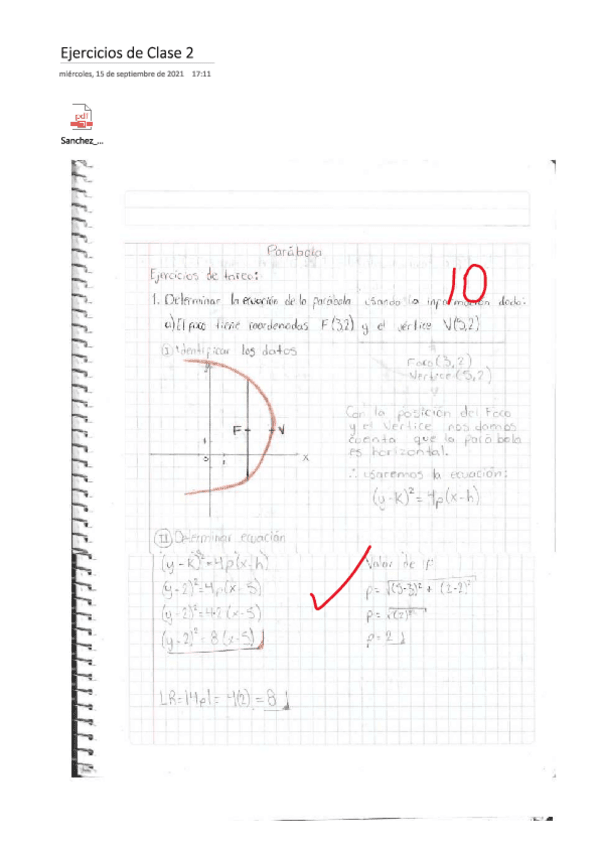 Ejercicios de Clase 2
miércoles, 15 de septiembre de 2021 17:11
pdf
Sanchez_...
Parábola
Ejercicios de tarea:
10
1. Determinar la ecuación de la parábola usando la información dada:
a) El foco tiene coordenadas F(3,2) y el vértice V(5,2)
I Identificar los datos
Foco(3,2)
Vertice(5,2)
Con la posición del Foco
y el Vertice nos damos
cuenta que la parábola
es horizontal.
∴ usaremos la ecuación:
(y-k)²=4p(x-h)
F V
1
0 1 x
II Determinar ecuación
(y-k)²=4p(x-h)
(y-2)²=4p(x-5)
(y-2)²=4·2(x-5)
(y-2)²=8(x-5)
Valor de P
p=√(5-3)²+(2-2)²
p=√(2)²
p=2
LR=|4p|=4(2)=8